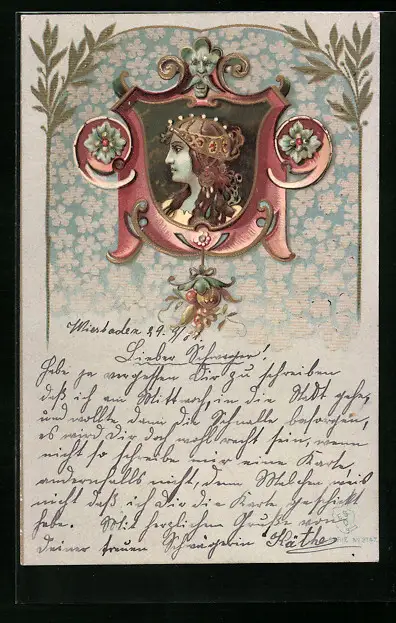 Wiesbaden 29. 9/01.
Lieber Schwager!
Habe ja vergessen Dir zu schreiben
daß ich am Mittwoch, in die Stadt gehe,
und wollte dann die Schnalle besorgen,
es wird Dir doch wohl recht sein, wenn
nicht so schreibe mir eine Karte,
andernfalls nicht, denn Malchen weis
nicht daß ich Dir die Karte geschickt
habe. Mit herzlichen Gruße von
Deiner treuen Schwägerin Käthe